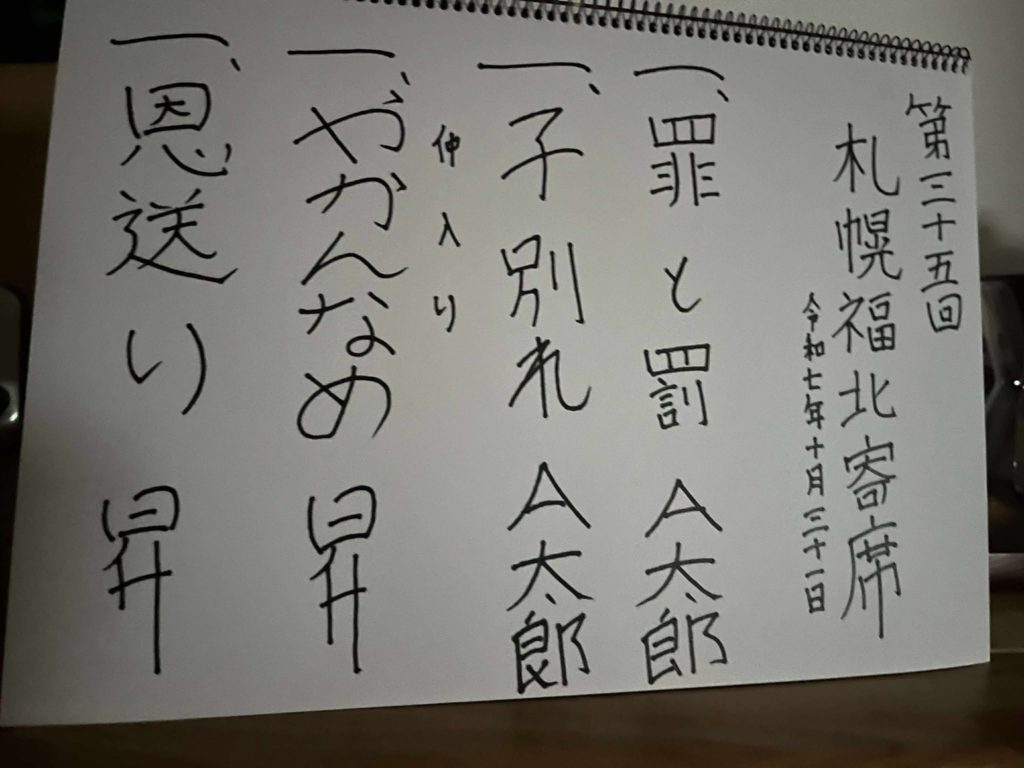 第三十五回
札幌福北寄席
令和七年十月三十一日
一、罪と罰 A太郎
一、子別れ A太郎
仲入り
一、やかんなめ 昇
一、恩送り 昇